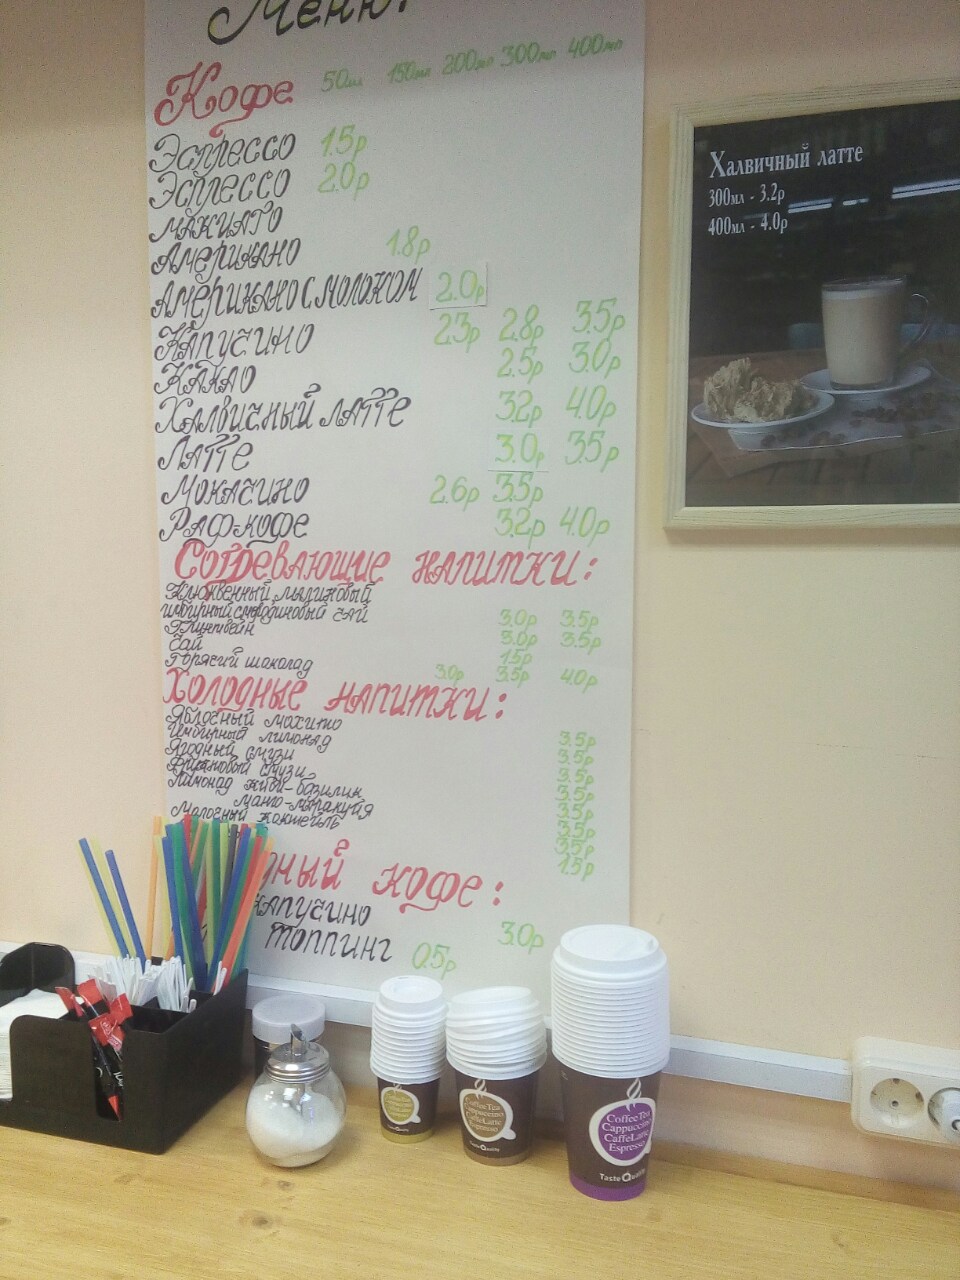 Меню:
Кофе 50мл 150мл 200мл 300мл 400мл
Эспрессо 1.5р
Эспрессо 2.0р
макиато
Американо 1.8р
Американо с молоком 2.0р
Капучино 2.3р 2.8р 3.5р
Какао 2.5р 3.0р
Халвичный латте 3.2р 4.0р
Латте 3.0р 3.5р
Мокачино 2.6р 3.5р
Раф-кофе 3.2р 4.0р
Согревающие напитки:
Клюквенный малиновый
имбирный смородиновый чай 3.0р 3.5р
Глинтвейн 3.0р 3.5р
Чай 1.5р
Горячий шоколад 3.0р 3.5р 4.0р
Холодные напитки:
Яблочный мохито 3.5р
Имбирный лимонад 3.5р
Ягодный смузи 3.5р
смузи 3.5р
Лимонад киви-базилик 3.5р
манго-маракуйя 3.5р
Молочный коктейль 3.5р
1.5р
дный кофе:
капучино 3.0р
топпинг 0.5р
Халвичный латте
300мл - 3.2р
400мл - 4.0р
Coffee Tea
Cappuccino
CaffeLatte
Espresso
Taste Quality
Coffee Tea
Cappuccino
CaffeLatte
Espresso
Taste Quality